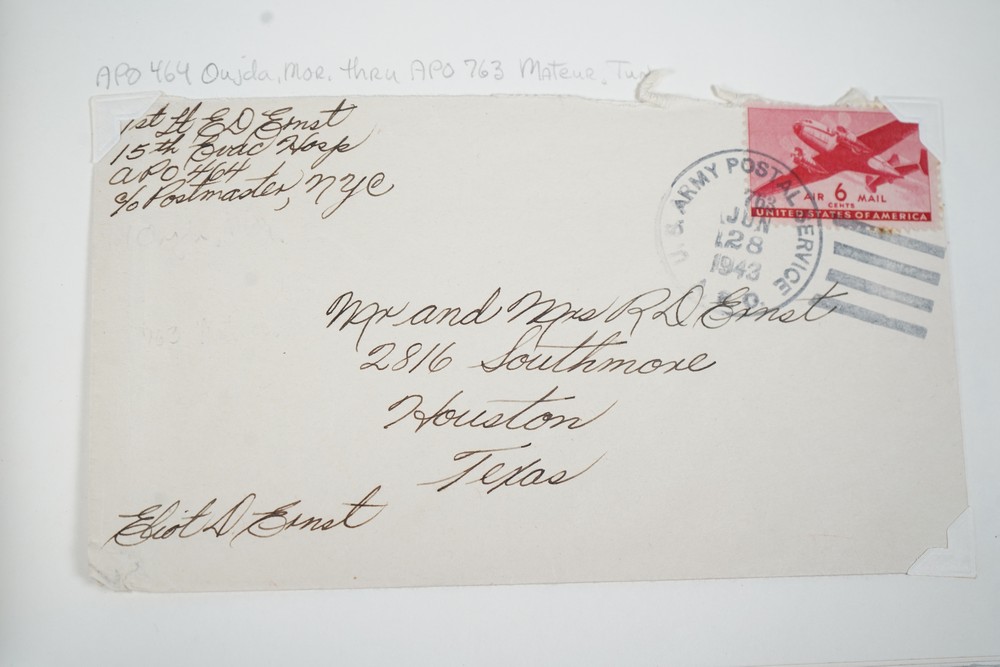 APO 464 Oujda, Mor. thru APO 763 Mateur,
1st Lt E D Ernst
15th Evac Hosp
APO 464
c/o Postmaster, NYC
U.S. ARMY POSTAL SERVICE
763
JUN
28
1943
AIR 6 MAIL
CENTS
UNITED STATES OF AMERICA
Mr and Mrs R D Ernst
2816 Southmore
Houston
Texas
Eliot D Ernst